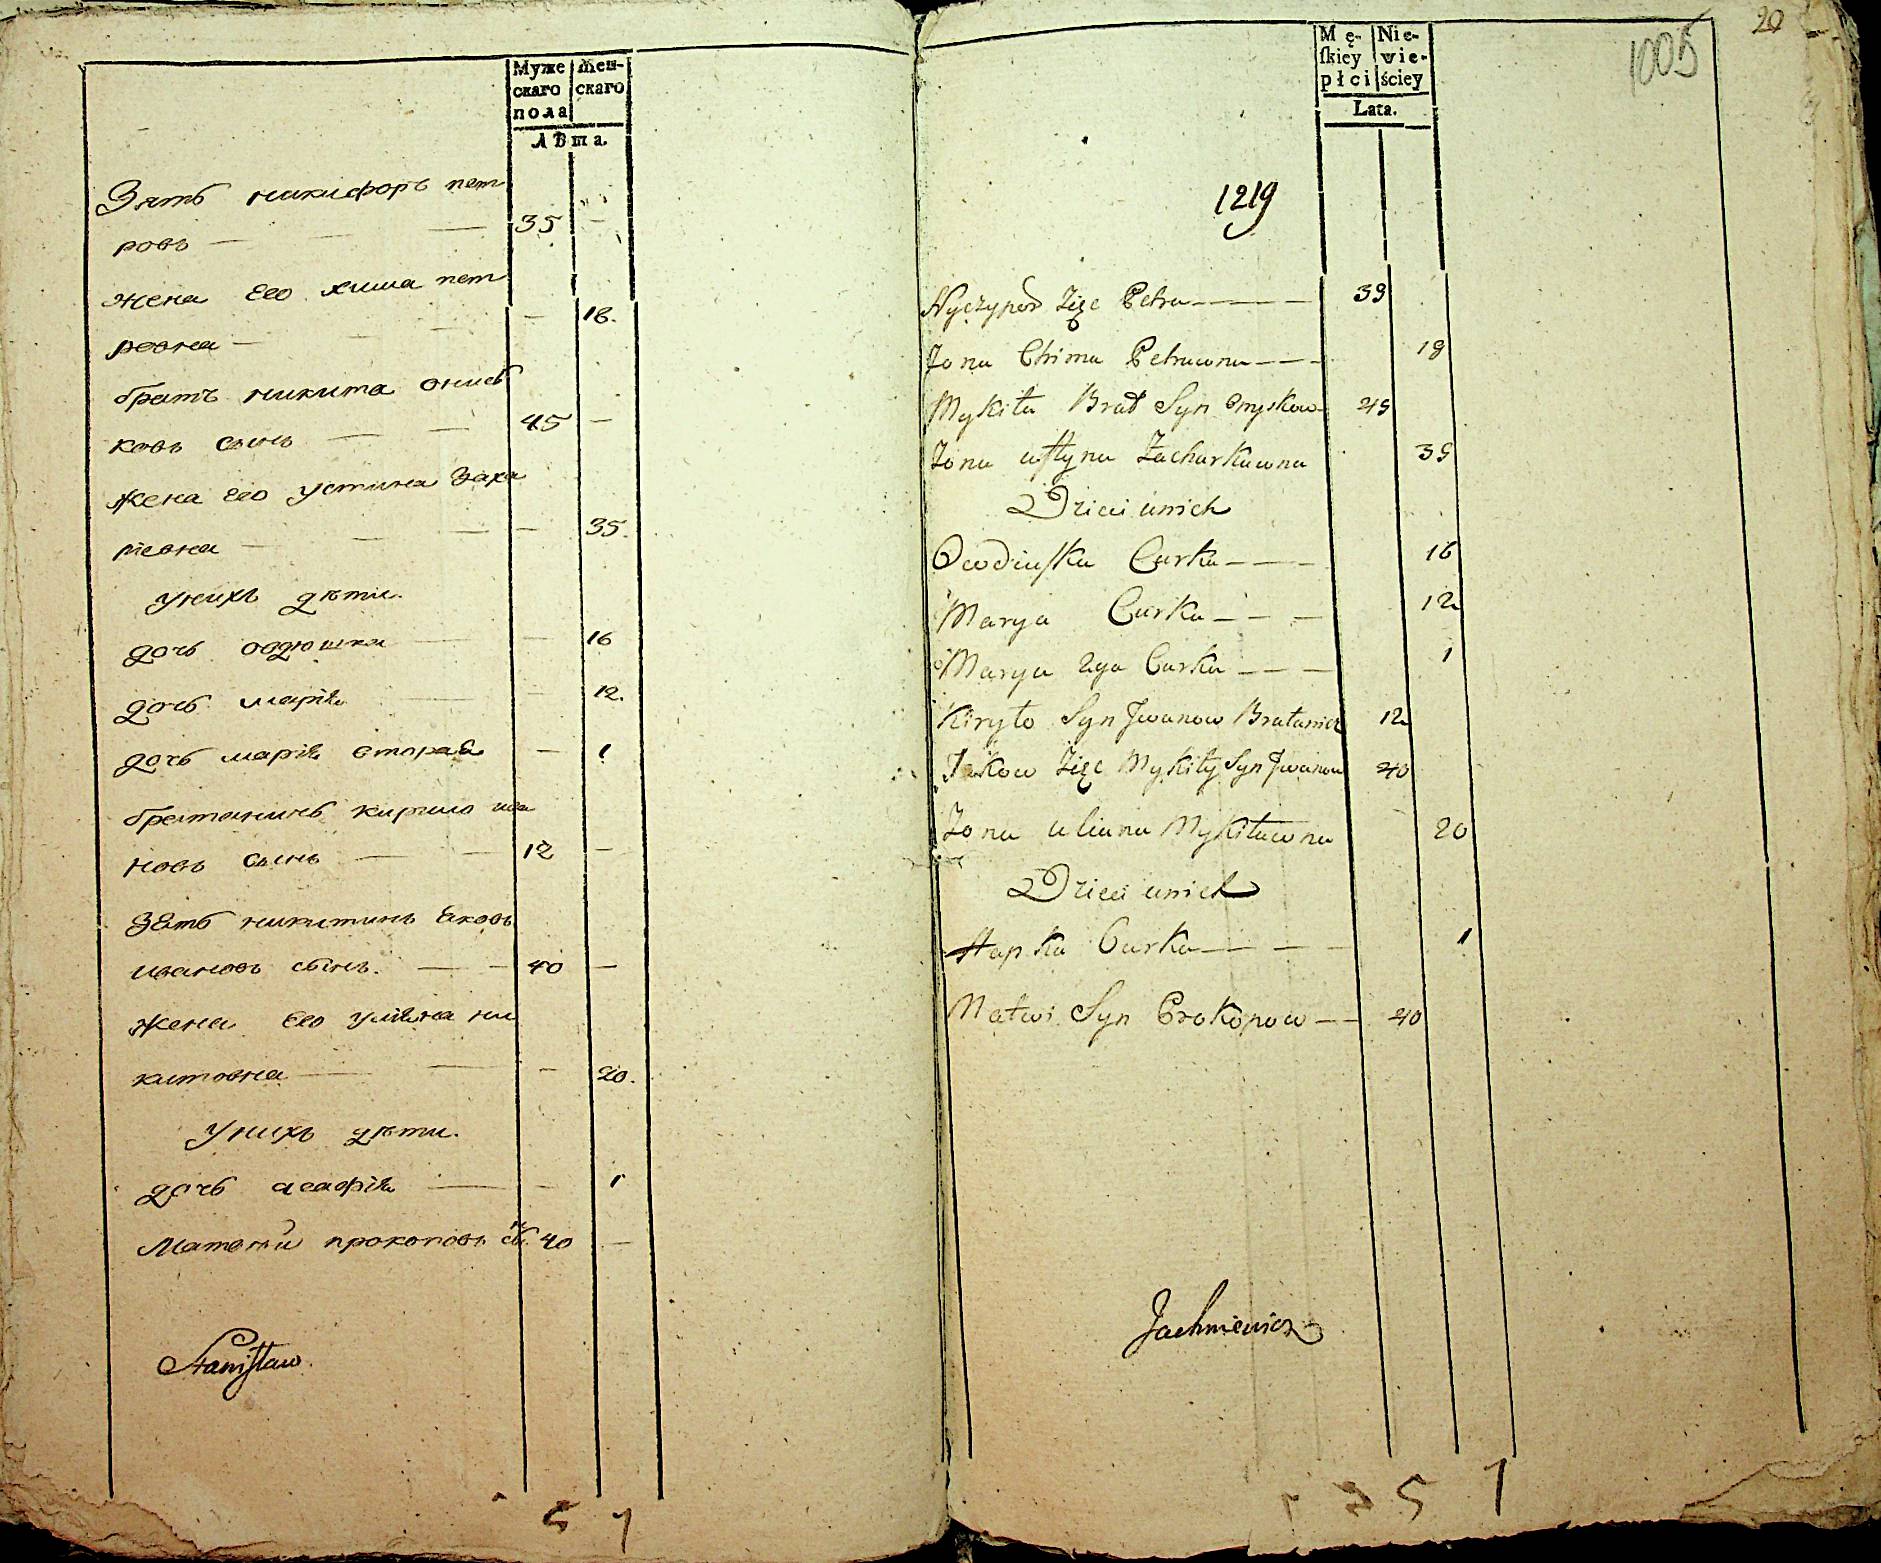 Муже Жен-
скаго скаго
пола
Лѣта.
Зять никифоръ пет
ровъ — — — 35 —
жена Его хима пет
ровна — — — — 18.
братъ никита онись
ковъ сынъ — — 45 —
жена его устина Заха
ріевна — — — — 35.
унихъ дѣти.
дочь овдюшка — — 16
дочь марія — — 12.
дочь марія вторая — 1
братаничь кирило ива
новъ сынъ — — 12 —
Зять никитинъ яковъ
ивановъ сынъ. — — 40 —
жена Его уляна ни
китовна — — — 20.
Унихъ дѣти.
дочь агафія — — 1
Матвѣй прокоповъ сынъ 40 —
Stanisław
20
1005
Mę- Nie-
skiey wie-
płci ściey
Lata.
1219
Nyczypor Zięc Petra — — — 39
Zona Chima Petrawna — — — 18
Mykita Brat Syn Onyskow 45
Zona ustyna Zacharkawna 35
Dzieci unich
Owdiuszka Curka — — — 16
Marya Curka — — — 12
Marya 2ga Curka — — — 1
Kiryło Syn Jwanow Bratanicz 12
Jakow Zięc Mykity Syn Jwanow 40
Zona uliana Mykitawna 20
Dzieci unich
Hapka Curka — — — 1
Matwi Syn Prokopow — — 40
Jachniewicz